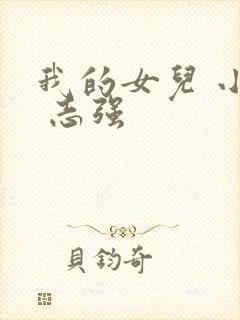 我的女兒
志强
貝鈞奇